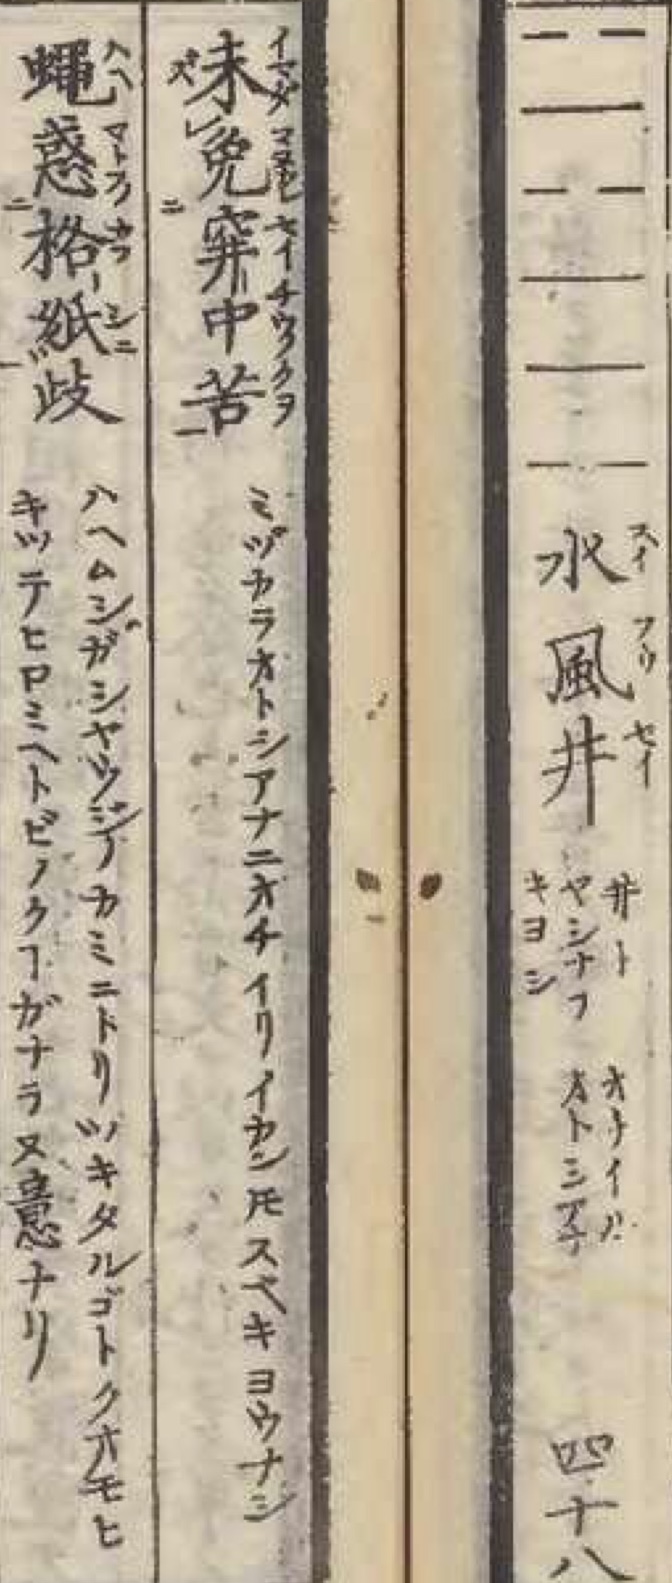 水風井
スイフウセイ
井ト
ヤシナフ
キヨシ
オチイル
オトシアナ
四十八
未免穽中苦
イマダマヌカレセイチウノクヲ
ズレニ一
ミヅカラオトシアナニオチイリイカントモスベキヨウナシ
蠅惑格紙歧
ハヘマトフカフシニ
ニ一
ハヘムシガシヤウジノカミニトリツキタルゴトクオモヒ
キツテヒロミヘトビノクヿガナラヌ意ナリ